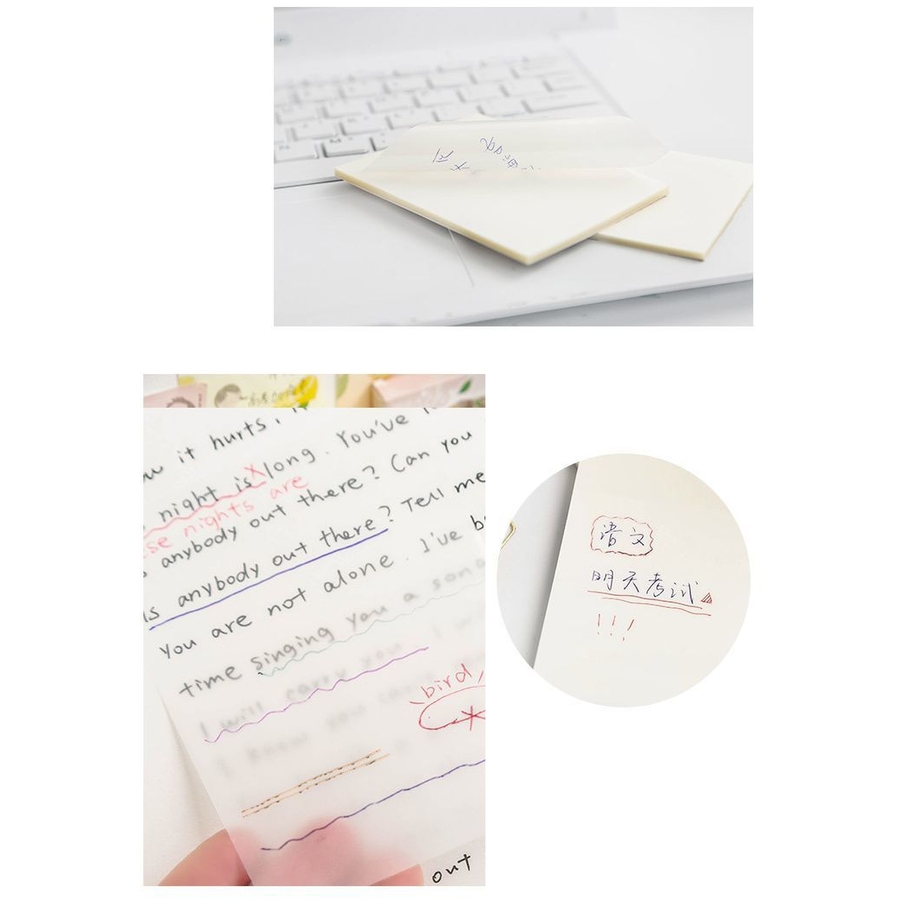 加油
it hurts,
night is long. You've
nights are
anybody out there? Can you
is anybody out there? Tell me
You are not alone. I've b
time singing you a song
I will carry you
bird
out
语文
明天考试
!!!